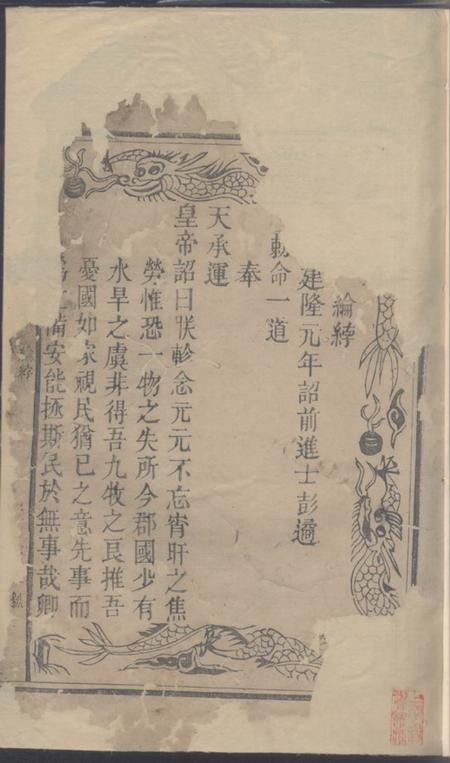 綸綍
建隆元年詔前進士彭遁
勅命一道
奉
天承運
皇帝詔曰朕軫念元元不忘宵旰之焦
勞惟恐一物之失所今郡國少有
水旱之虞非得吾九牧之良推吾
憂國如家視民猶已之意先事而
備安能拯斯民於無事哉卿
綍